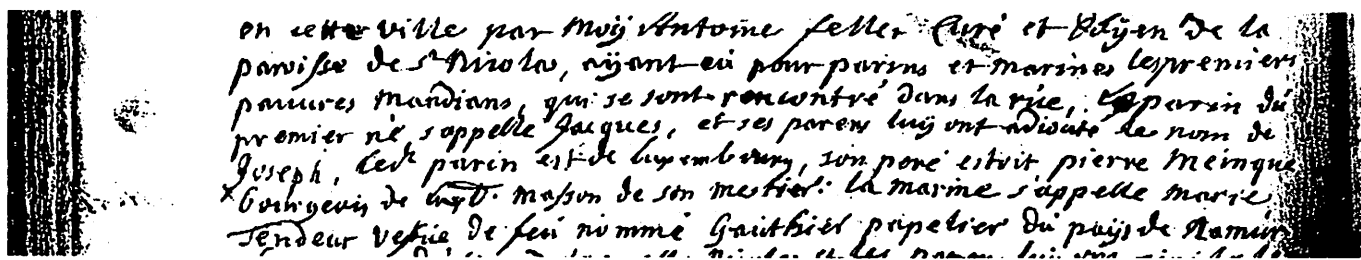 en cette ville par Moÿ Antoine feller Curé et Doÿen de la
paroisse de st Nicolas, aÿant eü pour parins et marines les premiers
pauvres mandians, qui se sont rencontré dans la rüe, le parin du
premier né s'appelle Jacques, et ses parens luÿ ont adiouté le nom de
Joseph, led. parin est de luxembourg, son peré estoit pierre Meinque
bourgeois de luxb. masson de son mestier: la marine s'appelle marie
Tendeur vefüe de feü nommé Gauthier papetier du païs de Namur